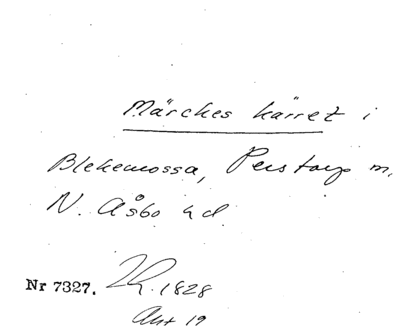 Märches kärret i
Blekemossa, Perstorp m.
N. Åsbo hd
Nr 7327. 1828
Ant 19